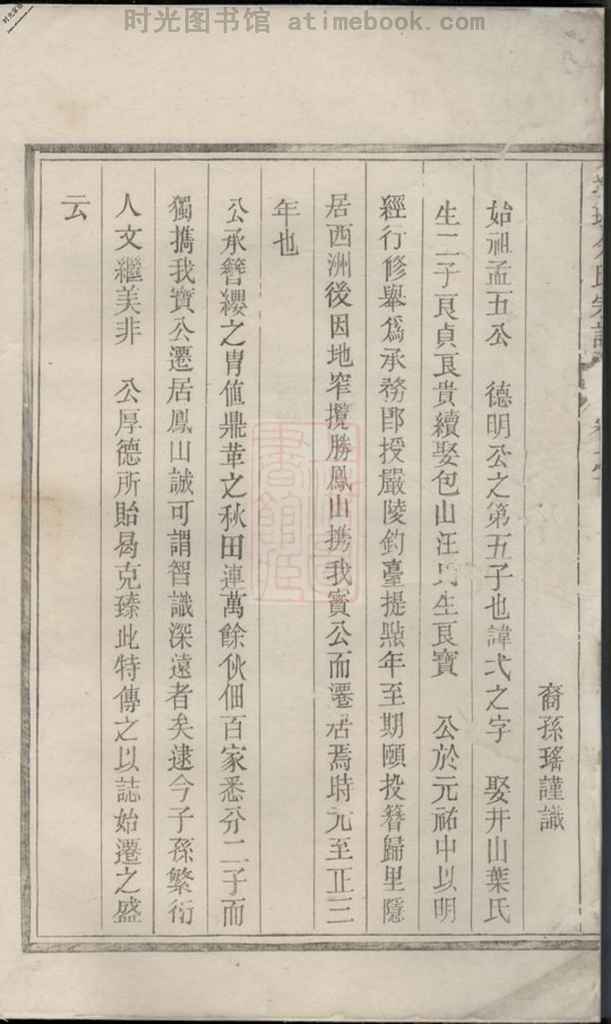 时光图书馆 atimebook.com
裔孫瑤謹識
始祖孟五公 德明公之第五子也諱弌之字 娶井山葉氏
生二子良貞良貴續娶包山汪氏生良寶 公於元祐中以明
經行修舉為承務郎授嚴陵釣臺提㸃年至期頤投簪歸里隱
居西洲後因地窄攬勝鳳山携我寶公而遷居焉時元至正三
年也
公承簪纓之胄值鼎革之秋田連萬餘伙佃百家悉分二子而
獨攜我寶公遷居鳳山誠可謂智識深遠者矣逮今子孫繁衍
人文繼美非 公厚德所貽曷克臻此特傳之以誌始遷之盛
云